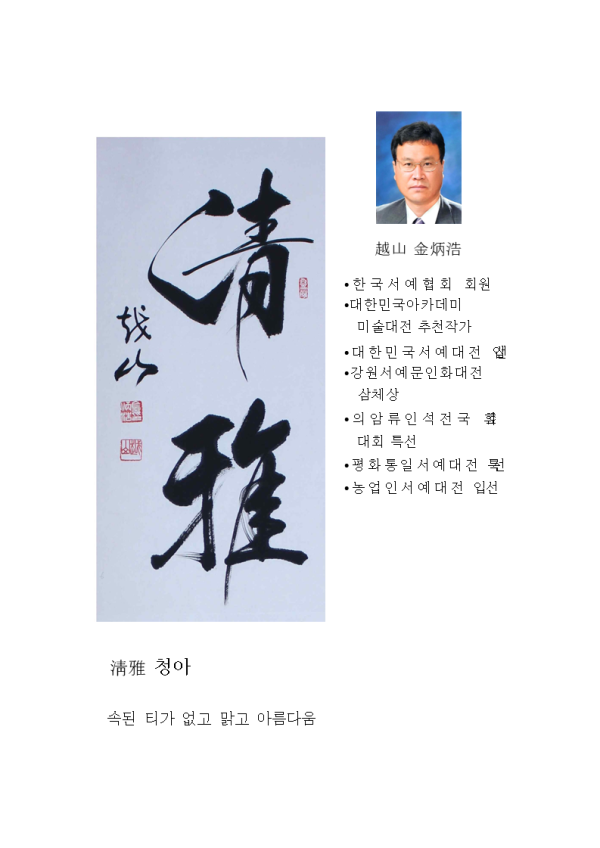 清
雅
越山
越山 金炳浩
•한국서예협회 회원
•대한민국아카데미
미술대전 추천작가
•대한민국서예대전
•강원서예문인화대전
삼체상
•의암류인석전국
대회 특선
•평화통일서예대전
•농업인서예대전 입선
淸雅 청아
속된 티가 없고 맑고 아름다움